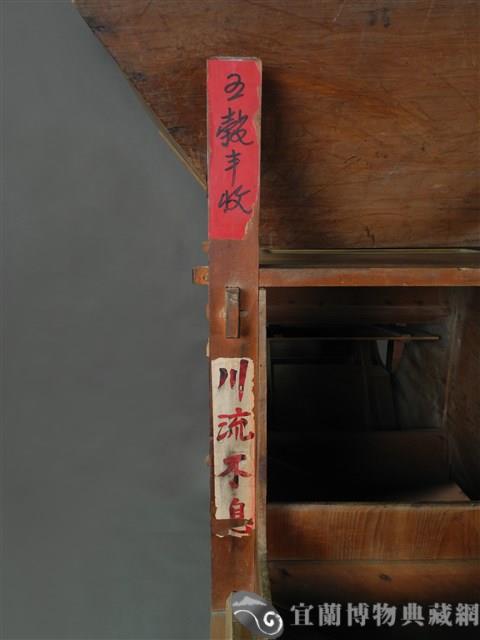 五穀丰收
川流不息
宜蘭博物典藏網